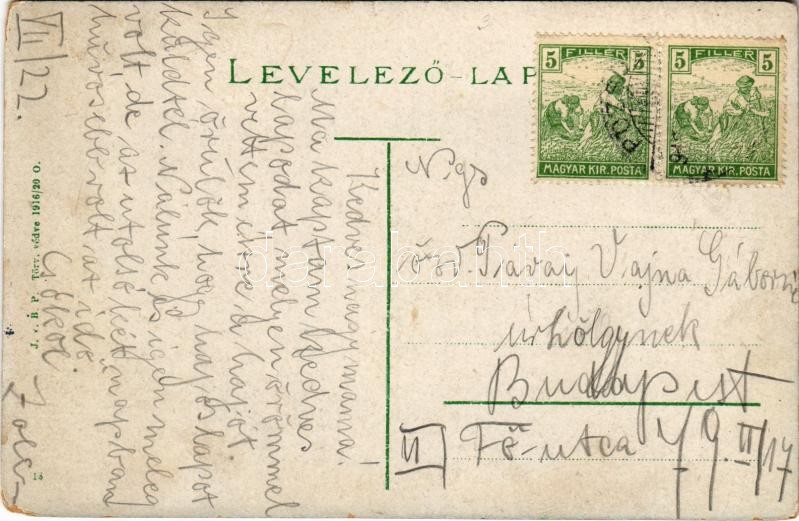 LEVELEZŐ-LAP
5 FILLÉR 5
MAGYAR KIR. POSTA
5 FILLÉR 5
MAGYAR KIR. POSTA
VII/22.
Kedves nagymama!
Ma kaptam kedves
lapodat melyen örömmel
vettem észre a hajót.
Igen örülök, hogy hajós lapot
küldtél. Nálunk is igen meleg
volt, de az utolsó két napban
hűvösebb volt az idő.
Csókol
Ngs
özv. Pavay Vajna Gáborné
úrhölgynek
Budapest
II Fő-utca 79. II/17
J. v. B. P. Törv. védve 1916/20 O.
darabanth